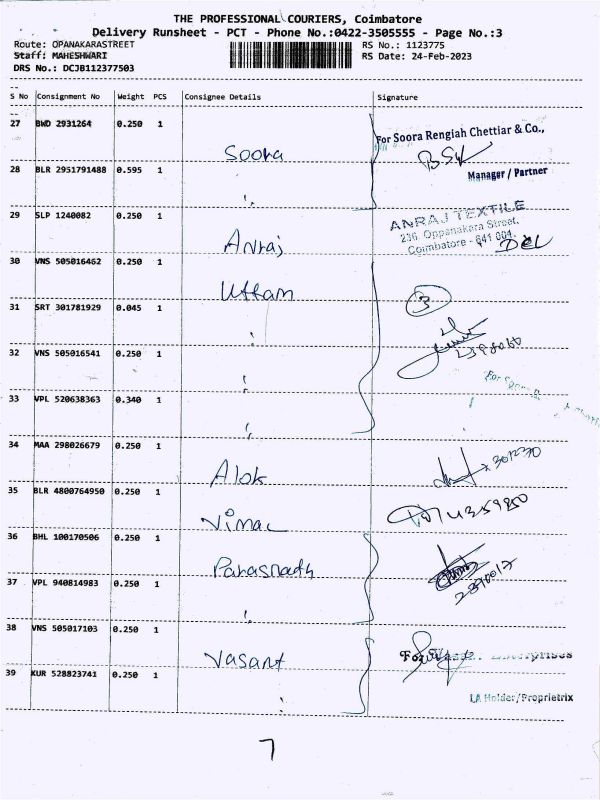 THE PROFESSIONAL COURIERS, Coimbatore
Delivery Runsheet - PCT - Phone No.:0422-3505555 - Page No.:3
Route: OPANAKARASTREET
RS No.: 1123775
Staff: MAHESHWARI
RS Date: 24-Feb-2023
DRS No.: DCJB112377503
S No Consignment No Weight PCS Consignee Details Signature
27 BWD 2931264 0.250 1 Soora
For Soora Rengiah Chettiar & Co.,
28 BLR 2951791488 0.595 1 "
Manager / Partner
29 SLP 1240082 0.250 1 Anraj
ANRAJ TEXTILE
236, Oppanakara Street,
Coimbatore - 641 001.
30 VNS 505016462 0.250 1 Uttam
3
31 SRT 301781929 0.045 1 "
32 VNS 505016541 0.250 1 "
33 VPL 520638363 0.340 1 "
34 MAA 298026679 0.250 1 Alok
35 BLR 4800764950 0.250 1 Vimal
36 BHL 100170506 0.250 1 Parasnath
37 VPL 940814983 0.250 1 "
38 VNS 505017103 0.250 1 Vasant
For
39 KUR 528823741 0.250 1 "
Holder/Proprietrix
7